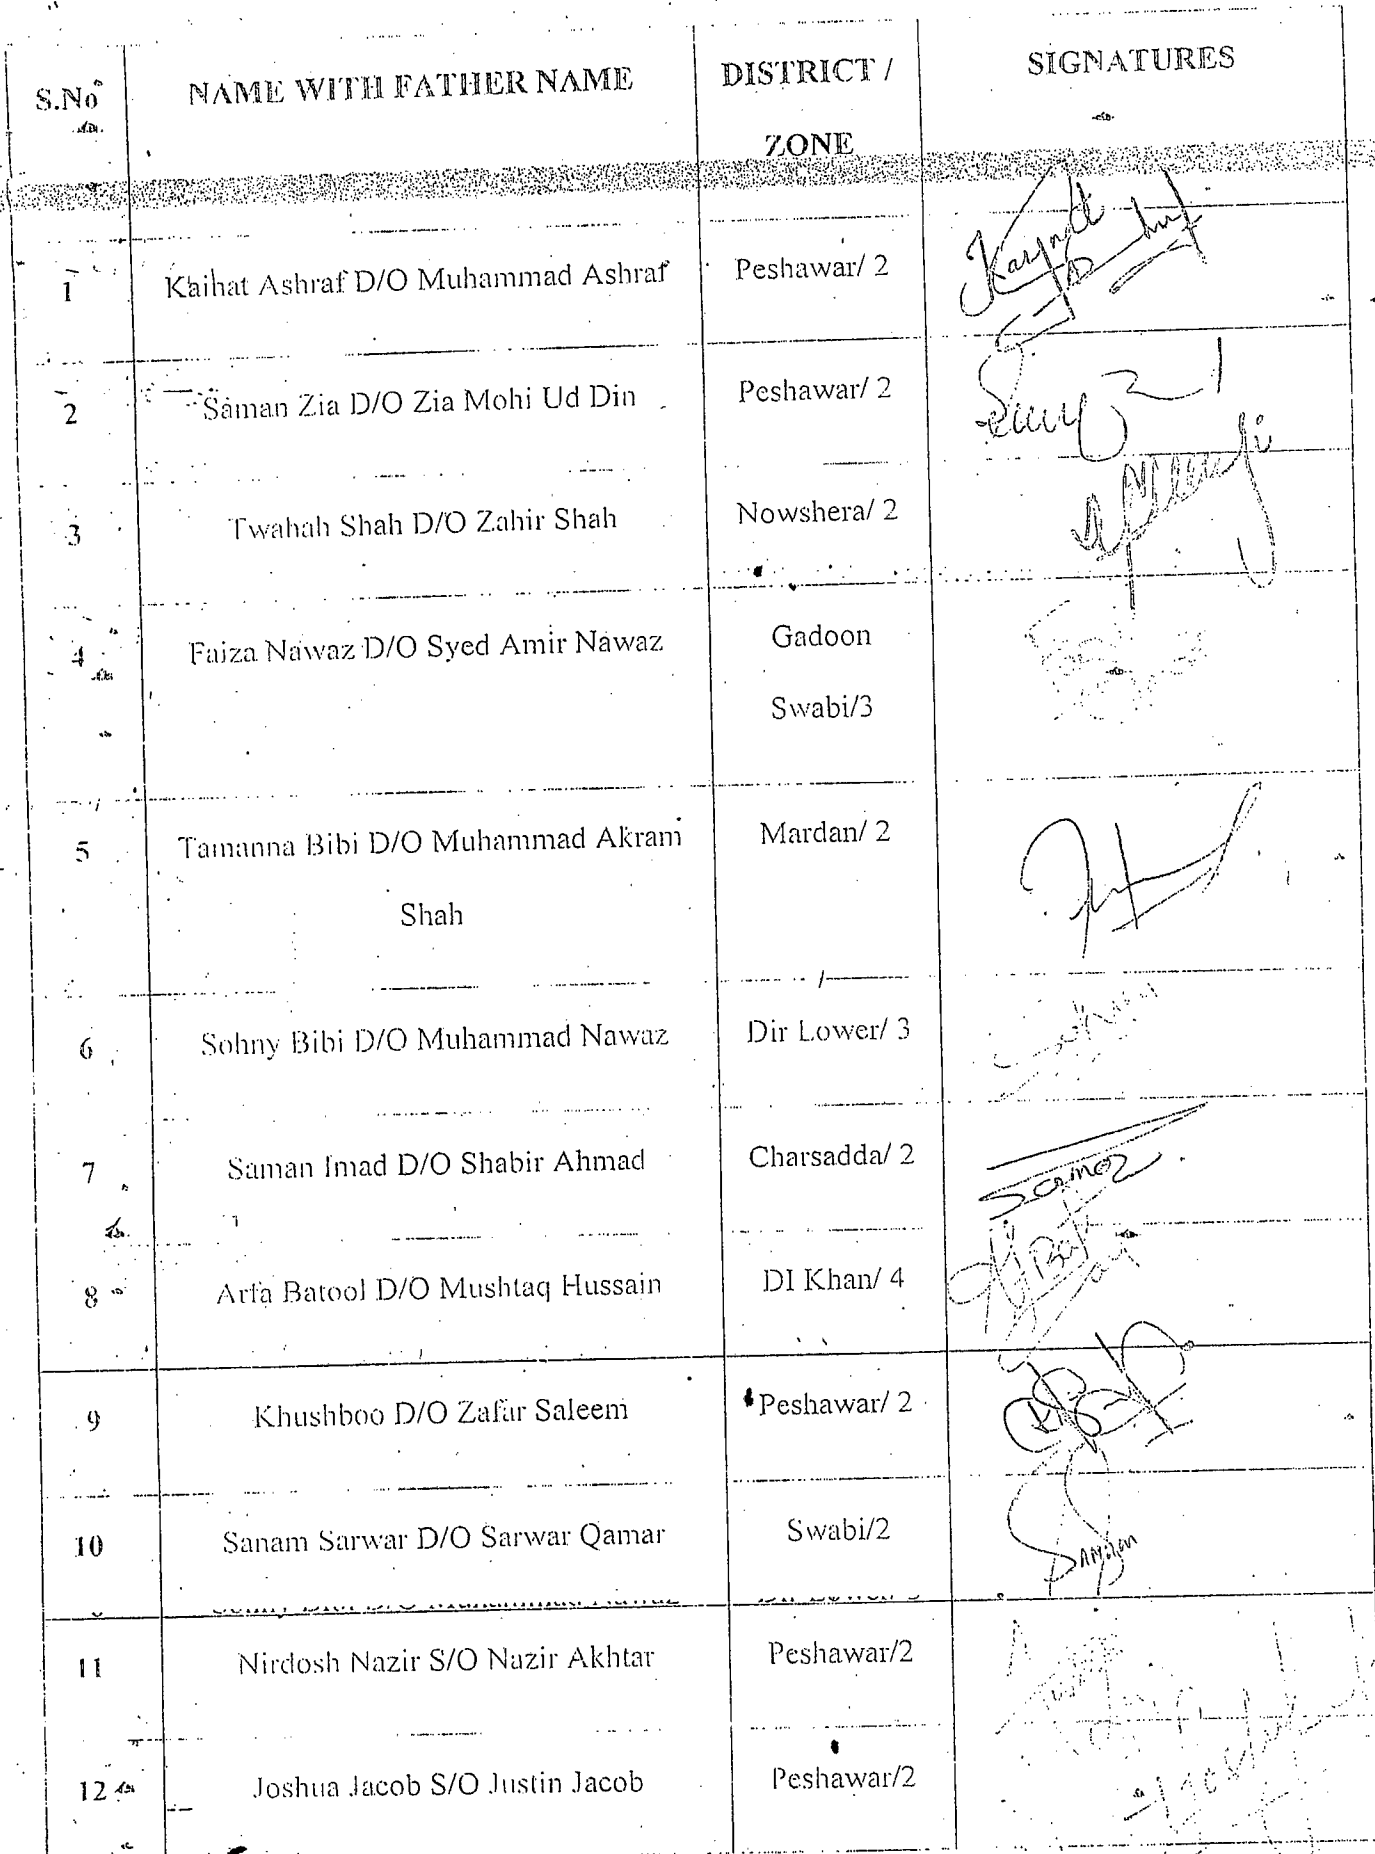 S.No NAME WITH FATHER NAME DISTRICT / SIGNATURES
ZONE
1 Kaihat Ashraf D/O Muhammad Ashraf Peshawar/ 2
2 Saman Zia D/O Zia Mohi Ud Din Peshawar/ 2
3 Twahah Shah D/O Zahir Shah Nowshera/ 2
4 Faiza Nawaz D/O Syed Amir Nawaz Gadoon
Swabi/3
5 Tamanna Bibi D/O Muhammad Akram Mardan/ 2
Shah
6 Sohny Bibi D/O Muhammad Nawaz Dir Lower/ 3
7 Saman Imad D/O Shabir Ahmad Charsadda/ 2
8 Arfa Batool D/O Mushtaq Hussain DI Khan/ 4
9 Khushboo D/O Zafar Saleem Peshawar/ 2
10 Sanam Sarwar D/O Sarwar Qamar Swabi/2
11 Nirdosh Nazir S/O Nazir Akhtar Peshawar/2
12 Joshua Jacob S/O Justin Jacob Peshawar/2